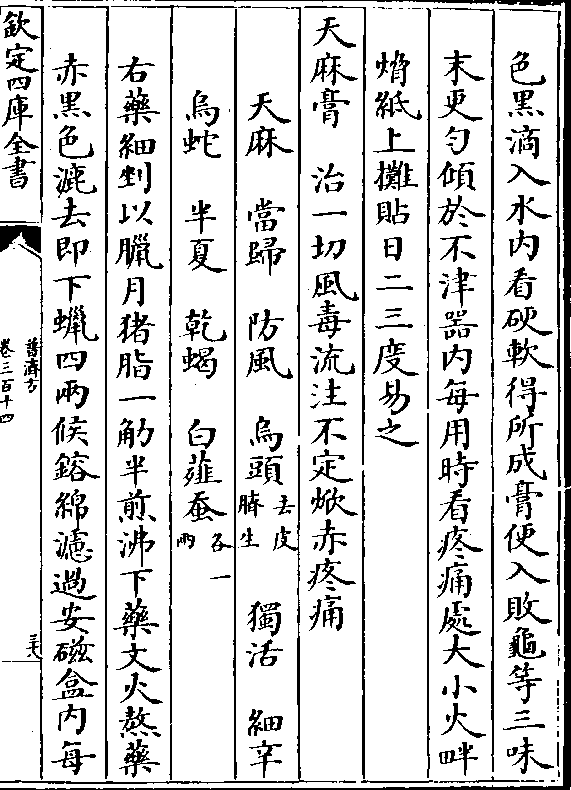 色黑滴入水内看硬軟得所成膏便入敗龜等三味
末更勻傾於不津器内每用時看疼痛處大小火畔
㸃紙上攤貼日二三度易之
天麻膏　治一切風毒流注不定焮赤疼痛
天麻　當歸　防風　烏頭去皮臍生　獨活　細辛
烏蛇　半夏　乾蝎　白殭蚕各一兩
右藥細剉以臘月猪脂一觔半煎沸下藥文火熬藥
赤黑色漉去即下蠟四兩候鎔綿濾過安磁盒内每
欽定四庫全書
普濟方
卷三百十四